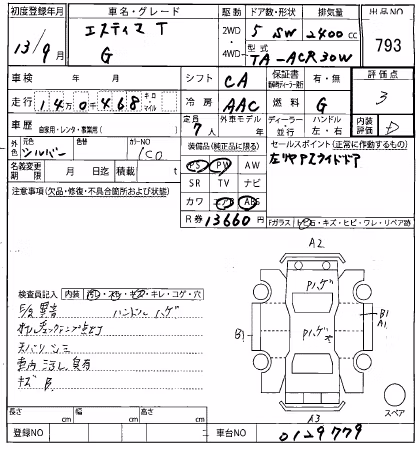 初度登録年月 車名・グレード 駆動 ドア数・形状 排気量 出品NO
13/9月 エスティマ T G 2WD・4WD 5 SW 2400 cc 793
型式 TA-ACR30W
車検 年 月 シフト CA 保証書 有・無 評価点
走行 140千468 キロ・マイル 冷房 AAC 燃料 G 3
車歴 自家用・レンタ・教習用( ) 定員 7人 外車モデル 年 ディーラー・並行 ハンドル 左・右 内装評価 D
外色 元色 シルバー カラーNO 1C0 装備品(純正品に限る) セールスポイント(正常に作動するもの)
PS PW AW 左リヤPスライドドア
名義変更期限 月 日迄 積載 t SR TV ナビ
注意事項(欠品・修復・不具合箇所および状態) カワ エアB ABS
R券 13660 円 Fガラス トビ石・キズ・ヒビ・ワレ・リペア跡
A2
検査員記入 内装 キレ・コゲ・穴
Pハゲ
ハンドルハゲ
B1 Pハゲ B1
A1
キズ B
A3
スペア
長さ cm 幅 cm 高さ cm
登録NO 車台NO 0129779